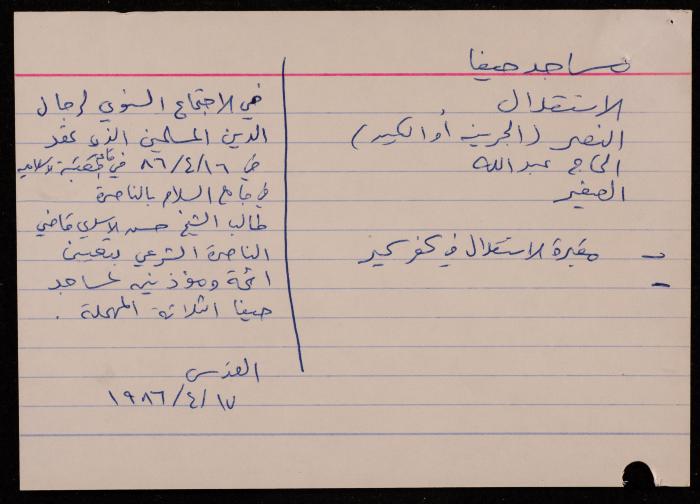 مساجد حيفا
الاستقلال
النصر (الجرينه أو الكبير)
الحاج عبد الله
الصغير
- مقبرة الاستقلال في كفر
-
في الاجتماع السنوي لرجال
الدين المسلمين الذي عقد
في ١٦/٤/٨٦ في قاعة المكتبة الاسلاميه
في جامع السلام بالناصرة
طالب الشيخ حسن الاسدي قاضي
الناصرة الشرعي بتعيين
ائمة ومؤذنين لمساجد
حيفا الثلاثة المهملة .
القدس
١٧/٤/١٩٨٦